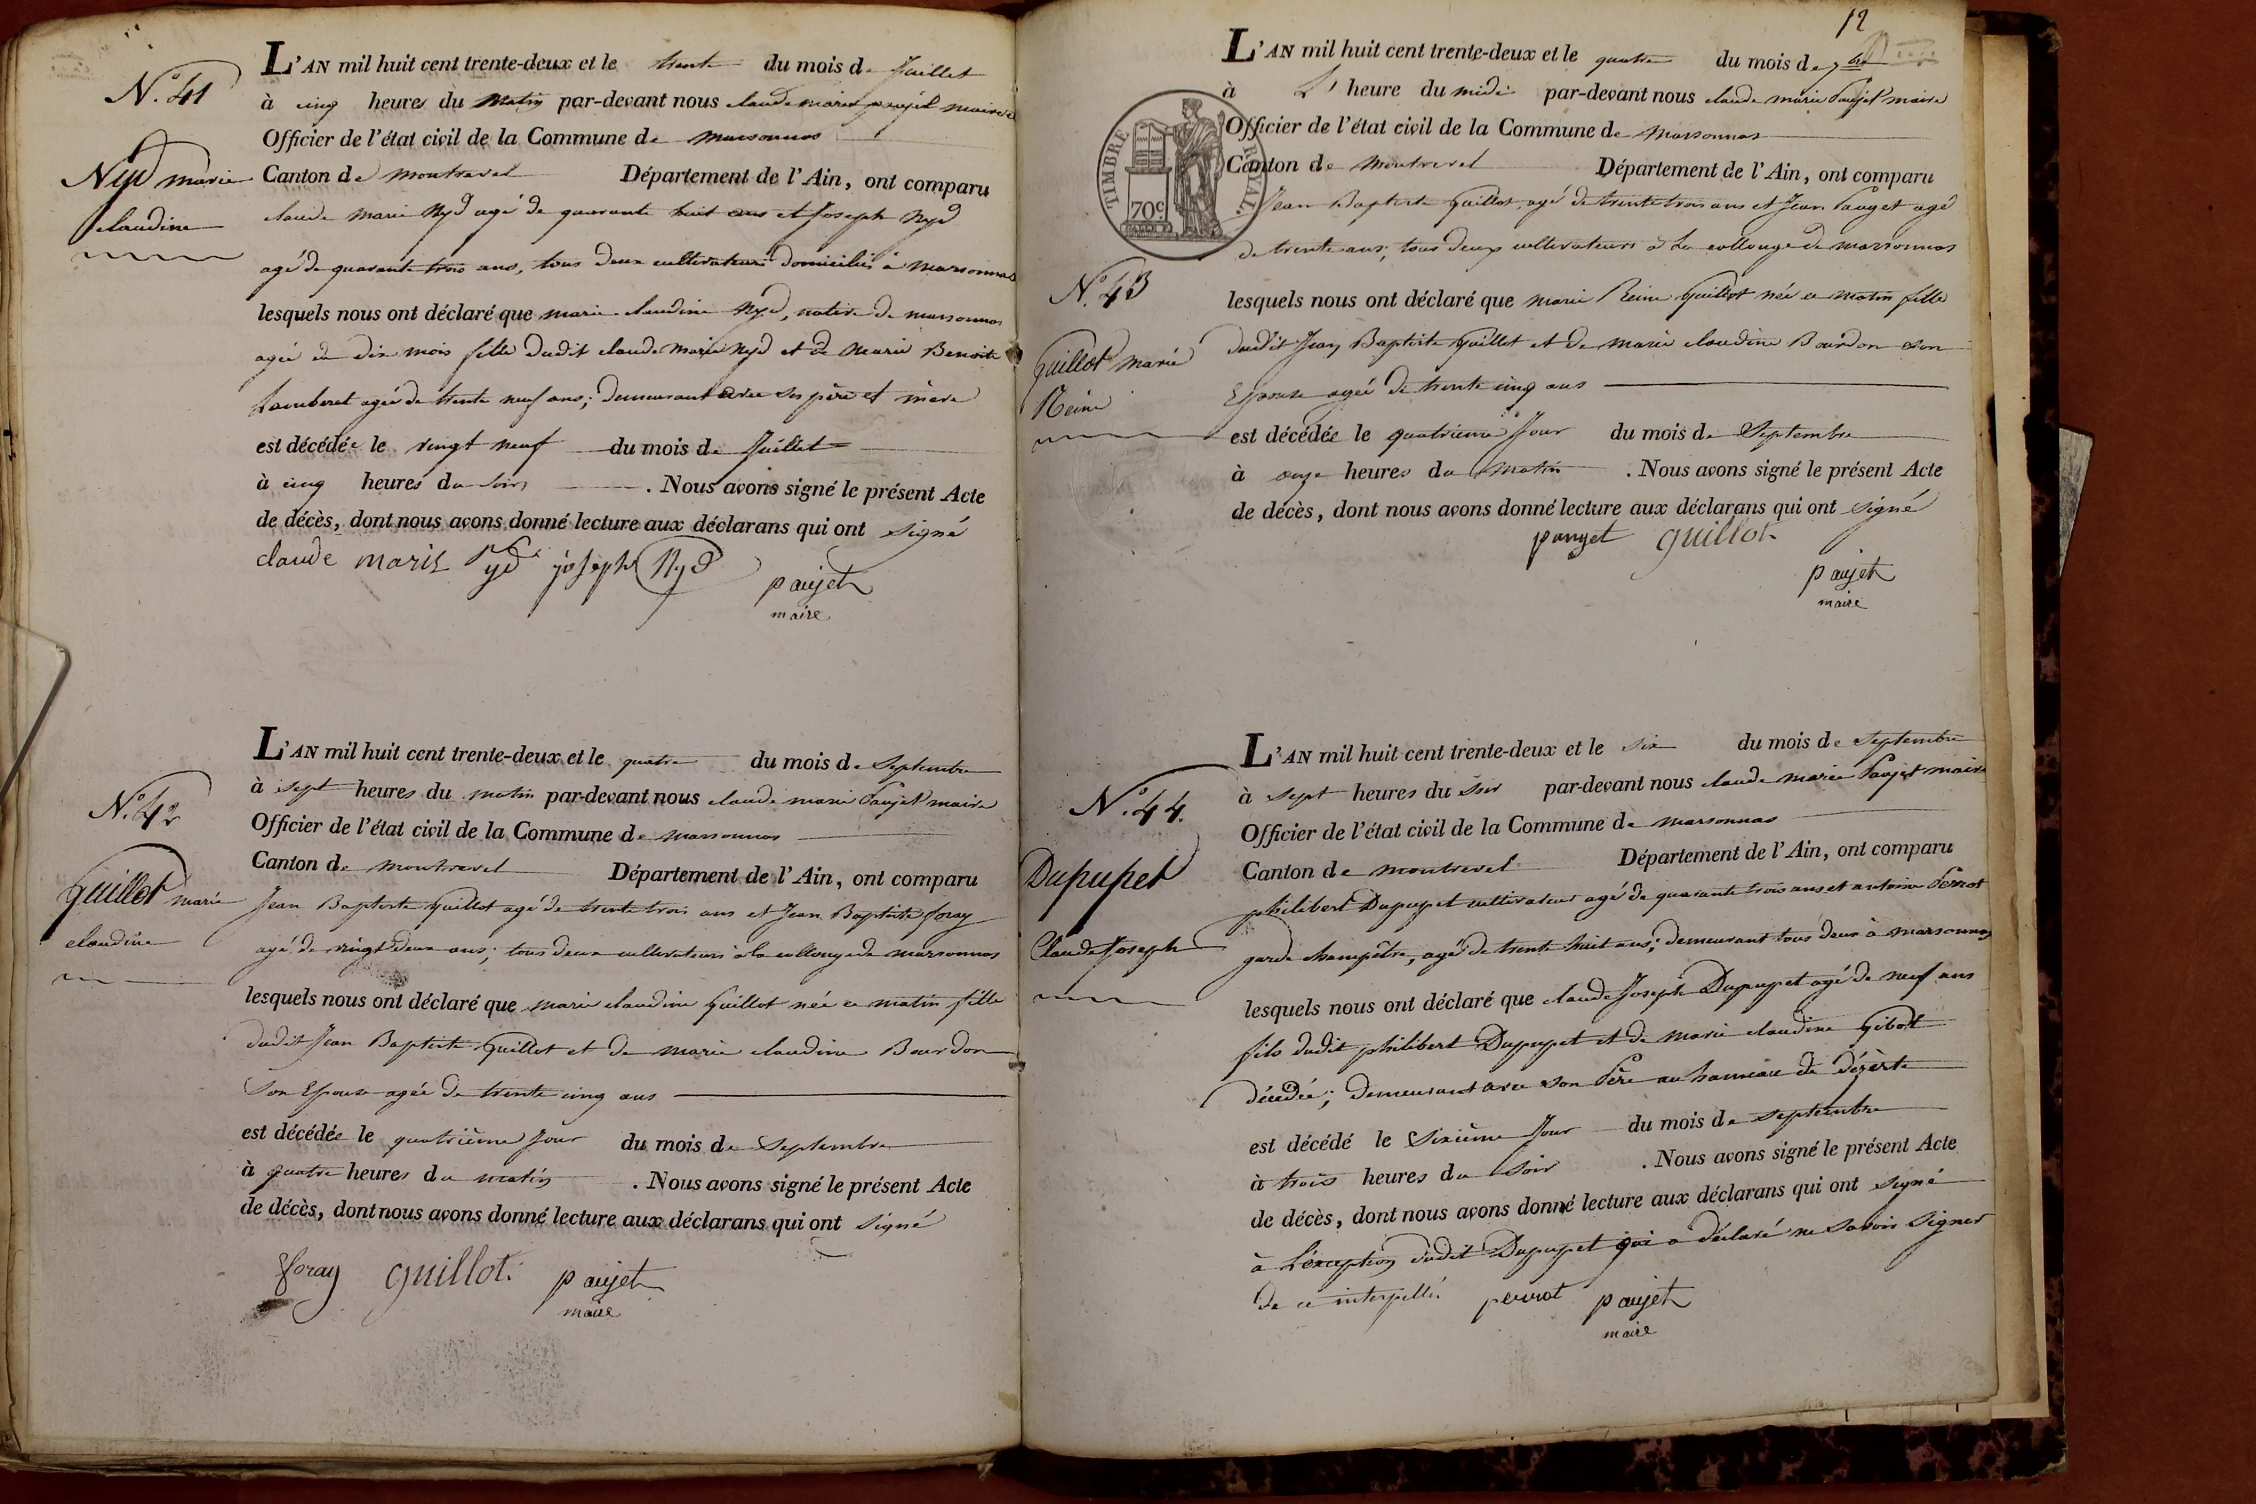 N.° 41
Nyd marie
claudine
L'AN mil huit cent trente-deux et le trente du mois de Juillet
à cinq heures du matin par-devant nous claude marie paujet maire
Officier de l'état civil de la Commune de marsonnas
Canton de montrevel Département de l'Ain, ont comparu
claude marie Nyd agé de quarante huit ans et Joseph Nyd
agé de quarante trois ans, tous deux cultivateurs domiciliés à marsonnas
lesquels nous ont déclaré que marie claudine Nyd, native de marsonnas
agée de dix mois fille dudit claude marie Nyd et de Marie Benoite
Lamberet agée de trente neuf ans; demeurant avec ses père et mère
est décédée le vingt neuf du mois de Juillet
à cinq heures du soir . Nous avons signé le présent Acte
de décès, dont nous avons donné lecture aux déclarans qui ont signé
claude marie nyd joseph Nyd paujet
maire
N.° 42
Guillot marie
claudine
L'AN mil huit cent trente-deux et le quatre du mois de Septembre
à sept heures du matin par-devant nous claude marie Paujet maire
Officier de l'état civil de la Commune de marsonnas
Canton de montrevel Département de l'Ain, ont comparu
Jean Baptiste Guillot agé de trente trois ans et Jean Baptiste foray
agé de vingt deux ans; tous deux cultivateurs à la collonge de marsonnas
lesquels nous ont déclaré que marie claudine Guillot née ce matin fille
dudit Jean Baptiste Guillot et de marie claudine Bourdon
Son Epouse agée de trente cinq ans
est décédée le quatrième Jour du mois de Septembre
à quatre heures du matin . Nous avons signé le présent Acte
de décès, dont nous avons donné lecture aux déclarans qui ont signé
foray guillot paujet
maire
12
TIMBRE ROYAL.
70c
N.° 43
Guillot marie
Reine
L'AN mil huit cent trente-deux et le quatre du mois de 7bre
à 1 heure du midi par-devant nous claude marie Paujet maire
Officier de l'état civil de la Commune de marsonnas
Canton de montrevel Département de l'Ain, ont comparu
Jean Baptiste Guillot, agé de trente trois ans et Jean Pauget agé
de trente ans, tous deux cultivateurs à La collonge de marsonnas
lesquels nous ont déclaré que marie Reine Guillot née ce matin fille
dudit Jean Baptiste Guillot et de marie claudine Bourdon son
Epouse agée de trente cinq ans
est décédée le quatrieme Jour du mois de Septembre
à onze heures du matin . Nous avons signé le présent Acte
de décès, dont nous avons donné lecture aux déclarans qui ont signé
pauget guillot
paujet
maire
N.° 44.
Dupupet
Claude Joseph
L'AN mil huit cent trente-deux et le six du mois de Septembre
à sept heures du soir par-devant nous claude marie Paujet maire
Officier de l'état civil de la Commune de marsonnas
Canton de montrevel Département de l'Ain, ont comparu
philibert Dupupet cultivateur agé de quarante trois ans et antoine Perrot
garde champêtre, agé de trente huit ans; demeurant tous deux à marsonnas
lesquels nous ont déclaré que claude Joseph Dupupet agé de neuf ans
fils dudit philibert Dupupet et de marie claudine Gibot
décédée; demeurant avec son Père au hameau de dézerte
est décédé le Sixième Jour du mois de Septembre
à trois heures du Soir . Nous avons signé le présent Acte
de décès, dont nous avons donné lecture aux déclarans qui ont signé
à L'exception dudit Dupupet qui a déclaré ne Savoir Signer
de ce interpellé. perrot paujet
maire